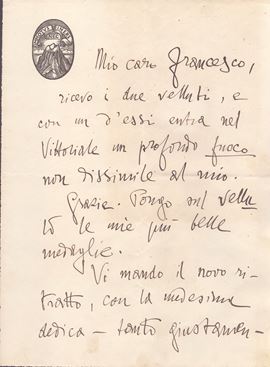 Mio caro Francesco,
ricevo i due velluti, e
con un d'essi entra nel
Vittoriale un profondo fuoco
non dissimile al mio.
Grazie. Pongo sul vellu
tò le mie più belle
medaglie.
Vi mando il novo ri-
tratto, con la medesima
dedica – tanto giustamen-